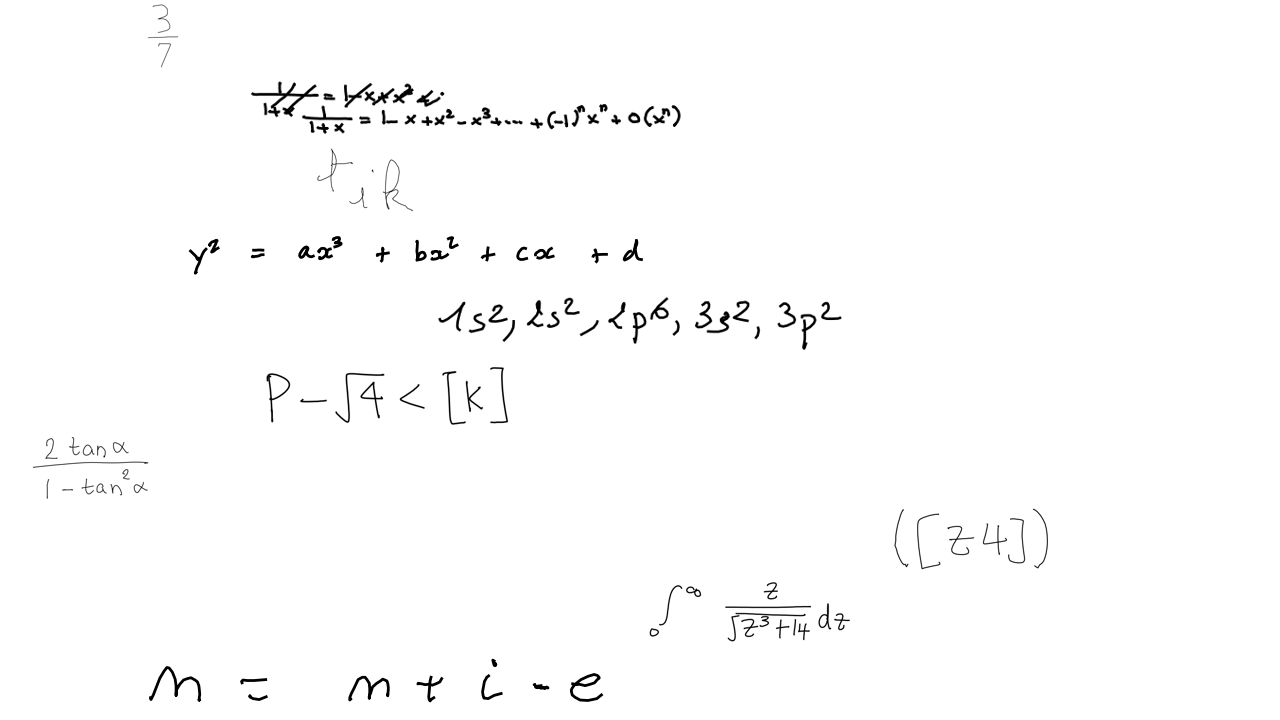 \frac{3}{7}
\frac{1}{1+x} = 1-x+x^2
\frac{1}{1+x} = 1-x+x^2-x^3+\cdots+(-1)^n x^n+o(x^n)
t_{ik}
y^2 = ax^3 + bx^2 + cx + d
1s^2, 2s^2, 2p^6, 3s^2, 3p^2
P-\sqrt{4}<[k]
\frac{2\tan\alpha}{1-\tan^2\alpha}
([z4])
\int_0^\infty \frac{z}{\sqrt{z^3+14}}dz
n = n+i-e